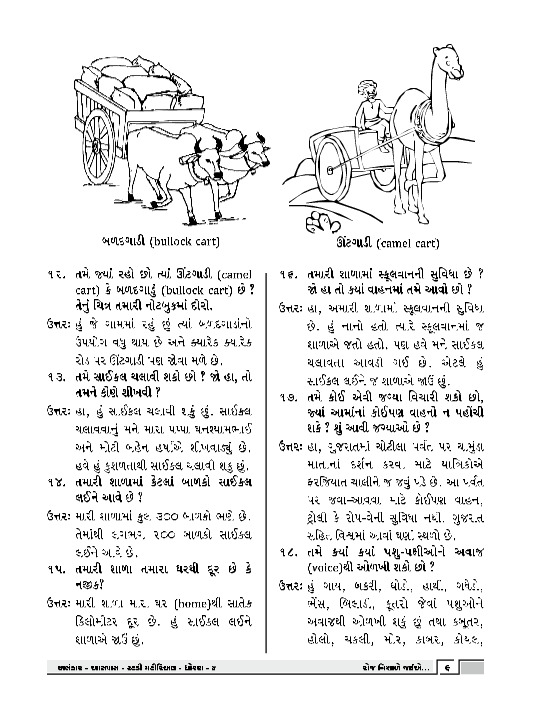 બળદગાડી (bullock cart)
ઊંટગાડી (camel cart)
૧૨. તમે જ્યાં રહો છો ત્યાં ઊંટગાડી (camel
cart) કે બળદગાડું (bullock cart) છે ?
તેનું ચિત્ર તમારી નોટબુકમાં દોરો.
ઉત્તર: હું જે ગામમાં રહું છું ત્યાં બળદગાડાંનો
ઉપયોગ વધુ થાય છે અને ક્યારેક ક્યારેક
રોડ પર ઊંટગાડી પણ જોવા મળે છે.
૧૩. તમે સાઈકલ ચલાવી શકો છો ? જો હા, તો
તમને કોણે શીખવી ?
ઉત્તર: હા, હું સાઈકલ ચલાવી શકું છું. સાઈકલ
ચલાવવાનું મને મારા પપ્પા ઘનશ્યામભાઈ
અને મોટી બહેન હર્ષાએ શીખવાડ્યું છે.
હવે હું કુશળતાથી સાઈકલ ચલાવી શકું છું.
૧૪. તમારી શાળામાં કેટલાં બાળકો સાઈકલ
લઈને આવે છે ?
ઉત્તર: મારી શાળામાં કુલ ૩૦૦ બાળકો ભણે છે.
તેમાંથી લગભગ ૨૦૦ બાળકો સાઈકલ
લઈને આવે છે.
૧૫. તમારી શાળા તમારા ઘરથી દૂર છે કે
નજીક?
ઉત્તર: મારી શાળા મારા ઘર (home)થી સાતેક
કિલોમીટર દૂર છે. હું સાઈકલ લઈને
શાળાએ જાઉં છું.
૧૬. તમારી શાળામાં સ્કૂલવાનની સુવિધા છે ?
જો હા તો ક્યાં વાહનમાં તમે આવો છો ?
ઉત્તર: હા, અમારી શાળામાં સ્કૂલવાનની સુવિધા
છે. હું નાનો હતો ત્યારે સ્કૂલવાનમાં જ
શાળાએ જતો હતો. પણ હવે મને સાઈકલ
ચલાવતા આવડી ગઈ છે. એટલે હું
સાઈકલ લઈને જ શાળાએ જાઉં છું.
૧૭. તમે કોઈ એવી જગ્યા વિચારી શકો છો,
જ્યાં આમાંનાં કોઈપણ વાહનો ન પહોંચી
શકે ? શું આવી જગ્યાઓ છે ?
ઉત્તર: હા, ગુજરાતમાં ચોટીલા પર્વત પર ચામુંડા
માતાનાં દર્શન કરવા માટે યાત્રિકોએ
ફરજિયાત ચાલીને જ જવું પડે છે. આ પર્વત
પર જવા-આવવા માટે કોઈપણ વાહન,
ટ્રોલી કે રોપ-વેની સુવિધા નથી. ગુજરાત
સહિત વિશ્વમાં આવાં ઘણાં સ્થળો છે.
૧૮. તમે ક્યાં ક્યાં પશુ-પક્ષીઓને અવાજ
(voice)થી ઓળખી શકો છો ?
ઉત્તર: હું ગાય, બકરી, ઘોડો, હાથી, ગધેડો,
ભેંસ, બિલાડી, કૂતરો જેવાં પશુઓને
અવાજથી ઓળખી શકું છું તથા કબૂતર,
હોલો, ચકલી, મોર, કાબર, કોયલ,
અલંકાર - આસપાસ - સ્ટડી મટીરિયલ - ધોરણ - ૪
રોજ નિશાળે જઈએ...
૯